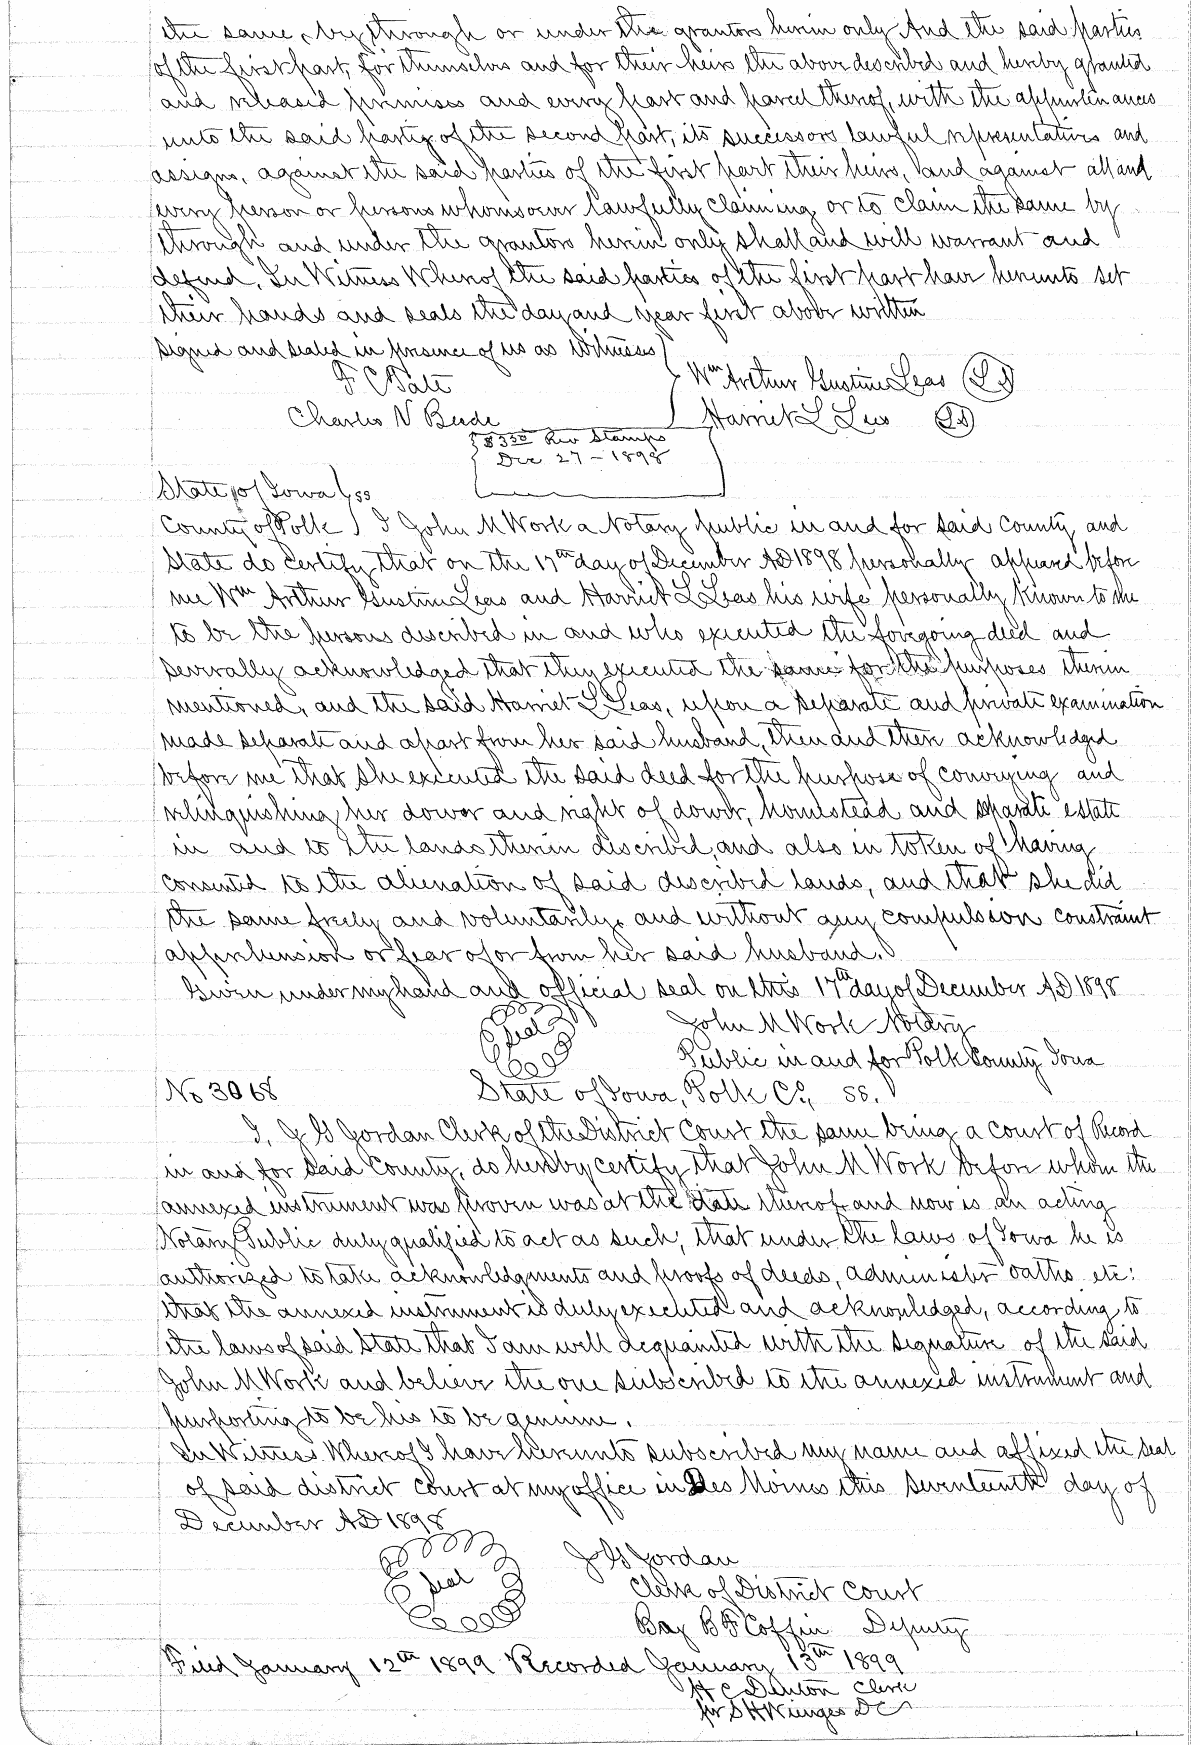 the same, by through or under the grantors herein only And the said parties
of the first part, for themselves and for their heirs the above described and hereby granted
and released premises and every part and parcel thereof, with the appurtenances
unto the said party of the second part, its successors lawful representatives and
assigns, against the said parties of the first part their heirs, and against all and
every person or persons whomsoever lawfully claiming or to claim the same by
through and under the grantors herein only shall and will warrant and
defend. In Witness Whereof the said parties of the first part have hereunto set
their hands and seals the day and year first above written
Signed and sealed in presence of us as Witnesses
F C Tate
Wm Arthur Gustine Leas (LS)
Charles N Beede
Harriet L Leas (LS)
$3.50 Rev Stamps
Dec 27 - 1898
State of Iowa ) ss
County of Polk ) I John M Work a Notary public in and for said County and
State do certify that on the 17th day of December AD 1898 personally appeared before
me Wm Arthur Gustine Leas and Harriet L Leas his wife personally known to me
to be the persons described in and who executed the foregoing deed and
severally acknowledged that they executed the same for the purposes therein
mentioned, and the said Harriet L Leas, upon a separate and private examination
made separate and apart from her said husband, then and there acknowledged
before me that she executed the said deed for the purpose of conveying and
relinquishing her dower and right of dower, homestead and separate estate
in and to the lands therein described, and also in token of having
consented to the alienation of said described lands, and that she did
the same freely and voluntarily, and without any compulsion constraint
apprehension or fear of or from her said husband.
Given under my hand and official seal on this 17th day of December AD 1898
Seal
John M Work Notary
Public in and for Polk County Iowa
No 3068 State of Iowa, Polk Co, ss.
I, J G Jordan Clerk of the District Court the same being a court of Record
in and for said County, do hereby certify that John M Work before whom the
annexed instrument was proven was at the date thereof and now is an acting
Notary Public duly qualified to act as such, that under the laws of Iowa he is
authorized to take acknowledgments and proofs of deeds, administer oaths etc:
that the annexed instrument is duly executed and acknowledged, according to
the laws of said State that I am well acquainted with the signature of the said
John M Work and believe the one subscribed to the annexed instrument and
purporting to be his to be genuine.
In Witness Whereof I have hereunto subscribed my name and affixed the seal
of said district court at my office in Des Moines this seventeenth day of
December AD 1898
Seal
J G Jordan
Clerk of District Court
By B F Coffin Deputy
Filed January 12th 1899 Recorded January 13th 1899
H C Denton Clerk
per S H DC